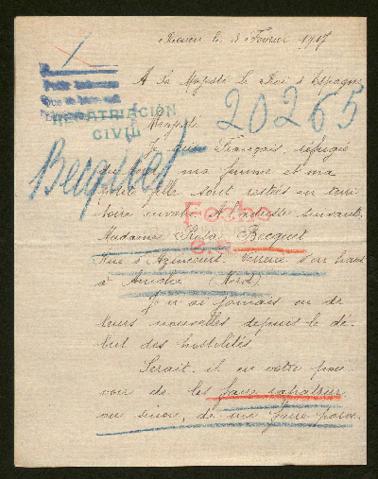 le 3 Février 1917
A Sa Majesté le Roi d'Espagne
REPATRIACIÓN
CIVIL
20265
Becquet
Je suis Français, réfugié
ma femme et ma
fille sont restées en terri
toire envahi à l'adresse suivante
Fecho
Madame Becquet
Rue d'Azincourt
à Aniche (Nord)
Je n'ai jamais eu de
leurs nouvelles depuis le dé-
but des hostilités
Serait-il en votre pou
voir de les faire rapatrier
ou sinon, de me faire